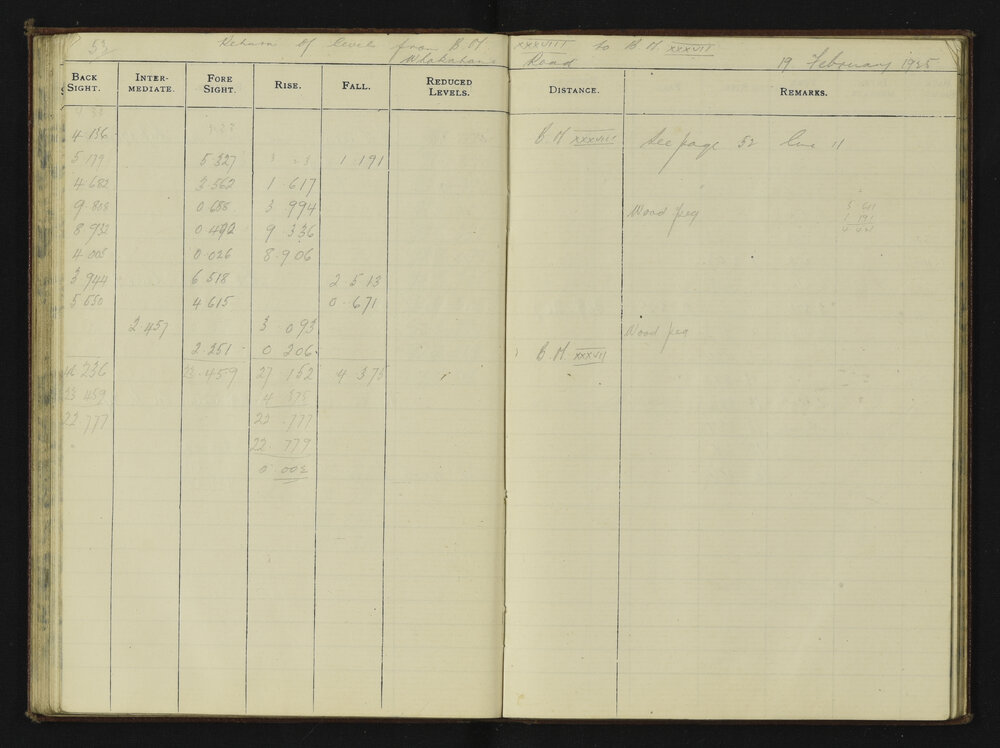 53 Return of level from B M XXXVIII to B M XXXVII
Whakatane Road 19 February 1935
BACK SIGHT. INTER-MEDIATE. FORE SIGHT. RISE. FALL. REDUCED LEVELS. DISTANCE. REMARKS.
4 136 B. M XXXVIII See page 52 Line 11
5 179 5 327 1 191
4.682 3.562 1 617
9.808 0.688 3 994 Wood peg
8 932 0.472 9 336
4 005 0.026 8.906
3 944 6 518 2 513
5 550 4 615 0.671
2 457 3 093 Wood peg
2 251 0 206 B. M XXXVII
46 236 23.459 27 152 4 375
23 459 4 375
22 777 22 777
22 779
0 002